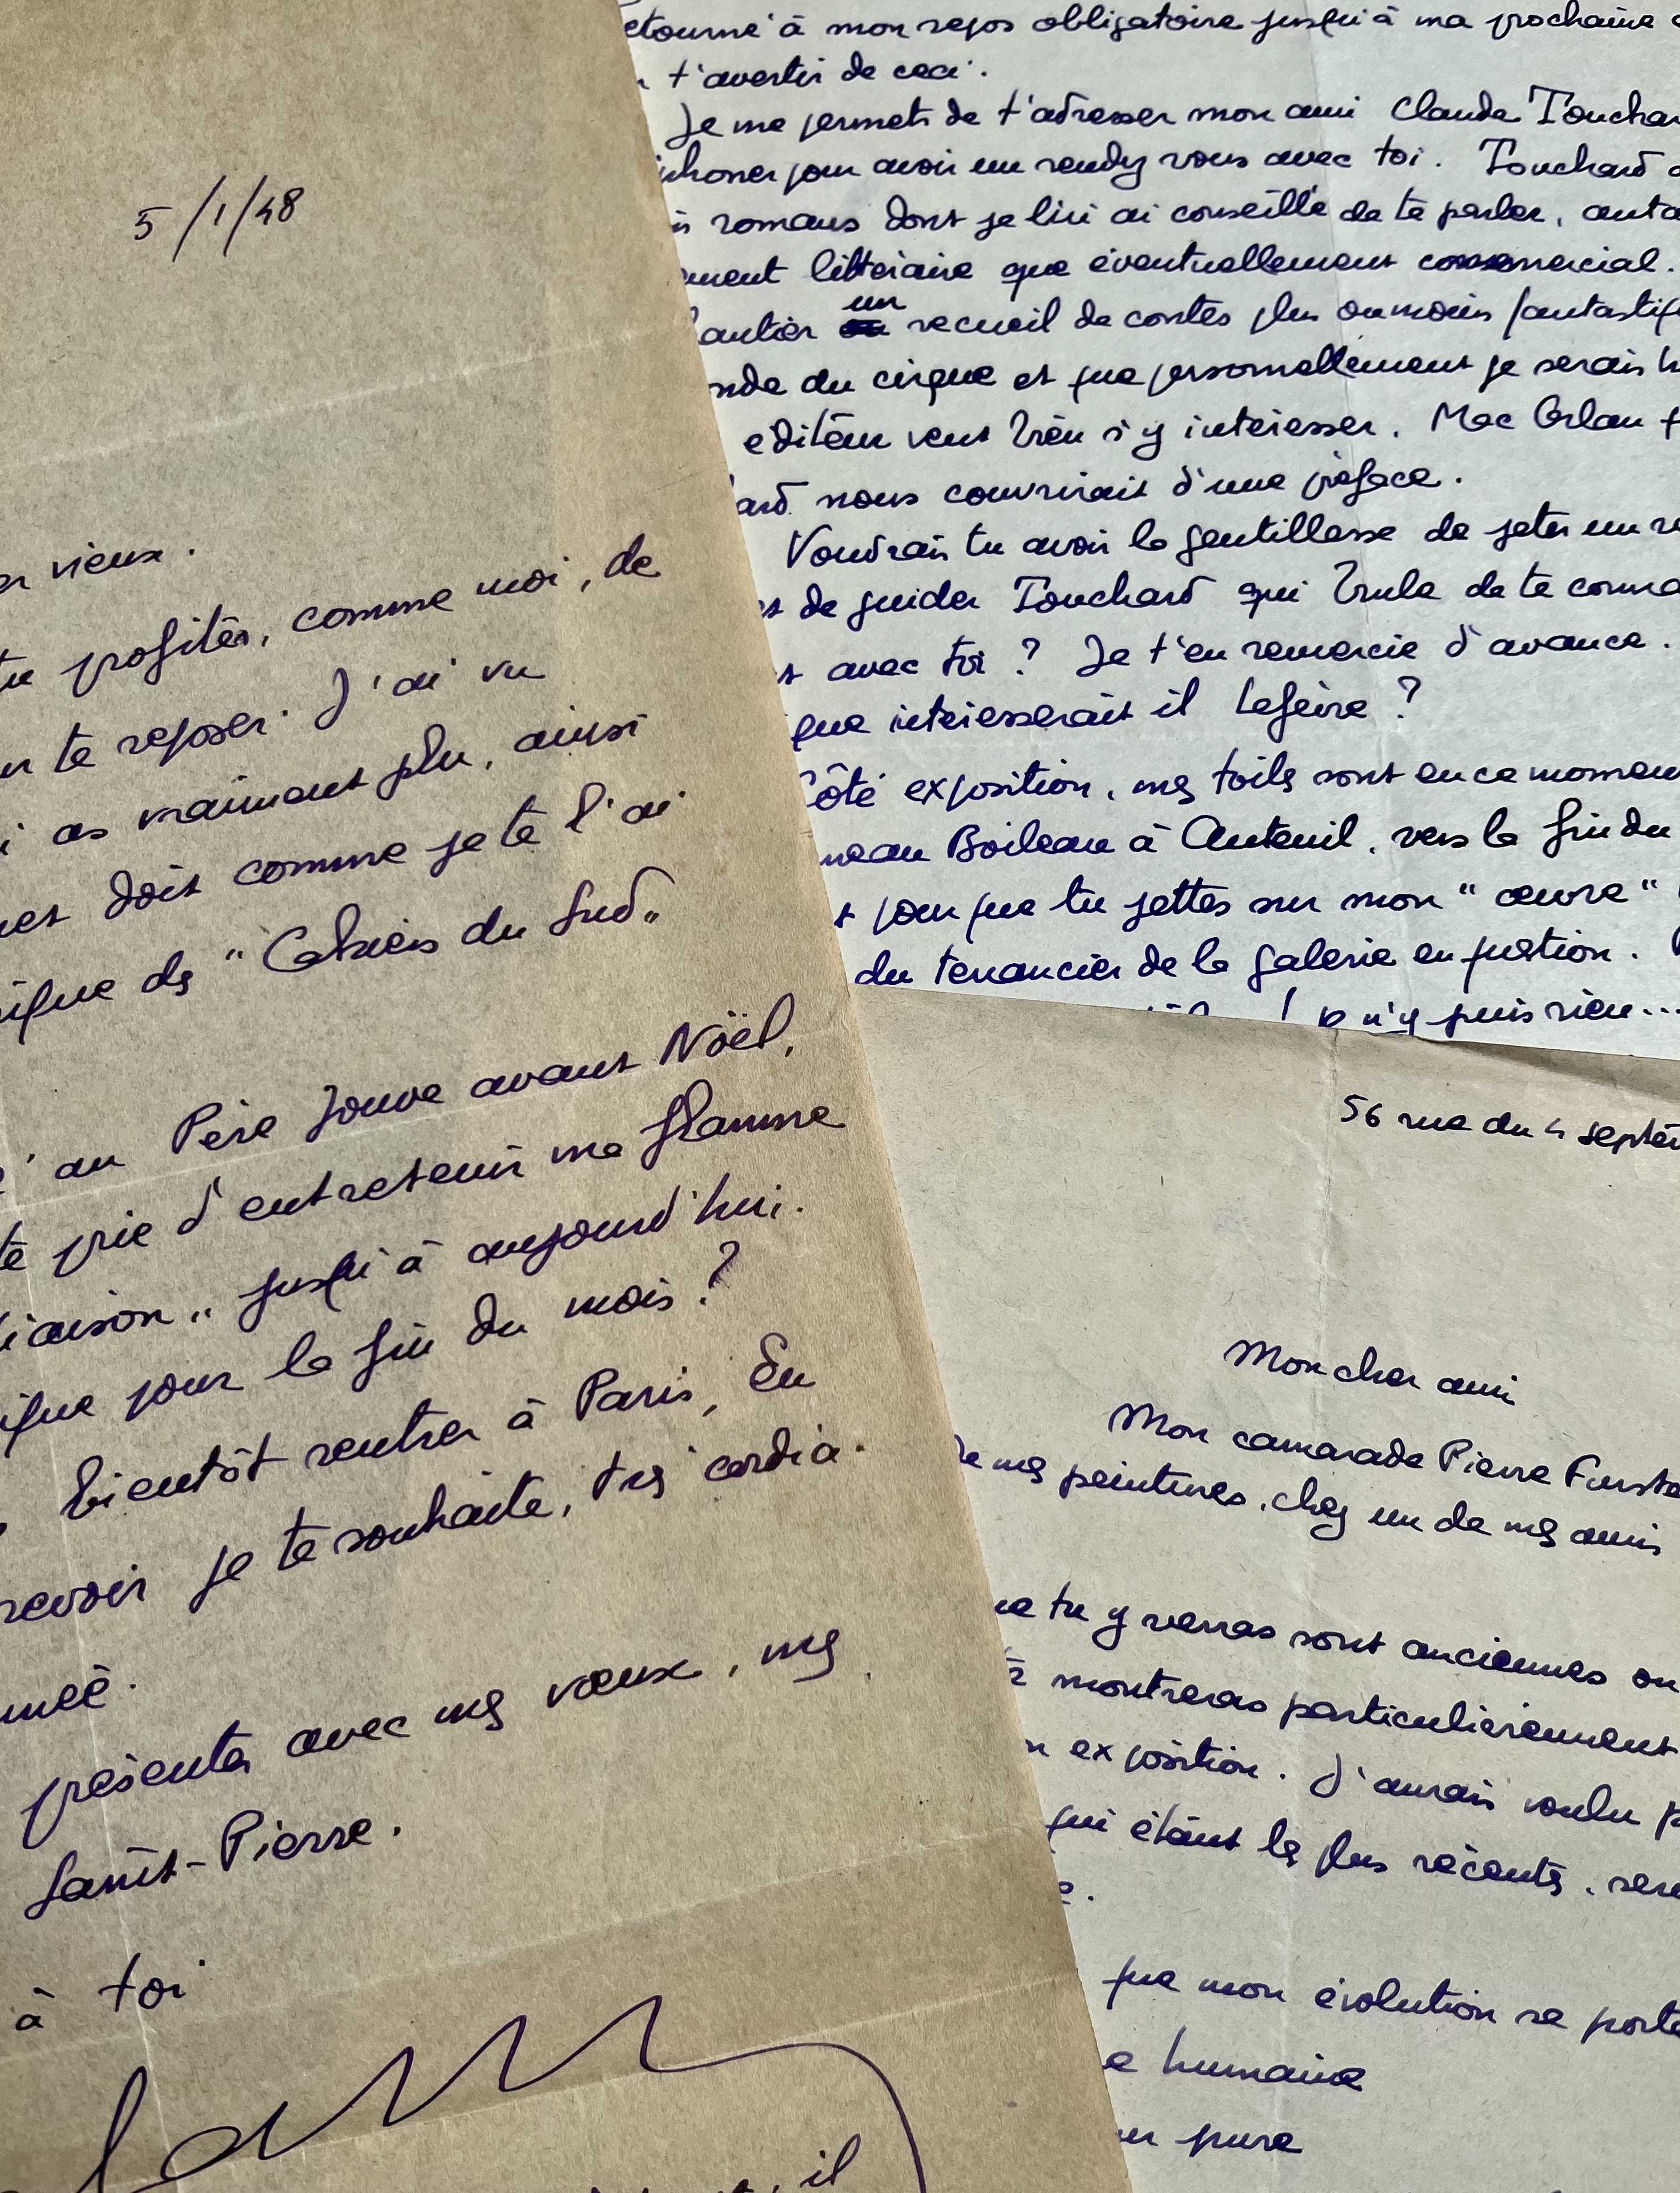 5/1/48
vieux.
tu profites, comme moi, de
te reposer. J'ai vu
as vraiment plu, ainsi
doit comme je te l'ai
des "Cahiers du Sud"
au Père Jouve avant Noël,
te prie d'entretenir ma flamme
liaison" jusqu'à aujourd'hui.
pour la fin du mois?
bientôt rentrer à Paris, En
revoir je te souhaite, très cordia-
présenter avec mes vœux, mes
Saint-Pierre.
à toi
il
etourné à mon repos obligatoire jusqu'à ma prochaine
t'avertir de ceci.
Je me permets de t'adresser mon ami Claude Touchar
phoner pour avoir un rendez vous avec toi. Touchard
romans dont je lui ai conseillé de te parler, auta
ment littéraire que éventuellement commercial.
un recueil de contes plus ou moins fantastiq
nde du cirque et que personnellement je serais h
éditeur veut bien s'y intéresser. Mac Orlan
ard nous couvrirait d'une préface.
Voudrais tu avoir la gentillesse de jeter un re
de guider Touchard qui brule de te conna
avec toi ? Je t'en remercie d'avance.
que intéresserait il Lefèvre ?
Côté exposition, mes toiles sont en ce momen
meau Boileau à Auteuil, vers la fin du
pour que tu jettes sur mon "œuvre"
du tenancier de la galerie en question.
! je n'y puis rien...
56 rue du 4 septem
Mon cher ami
Mon camarade Pierre Furste
de mes peintures, chez un de mes amis
ue tu y verras sont anciennes ou
te montreras particulièrement
exposition. J'aurais voulu p
qui étant les plus récentes, sera
que mon évolution se porte
humaine
pure